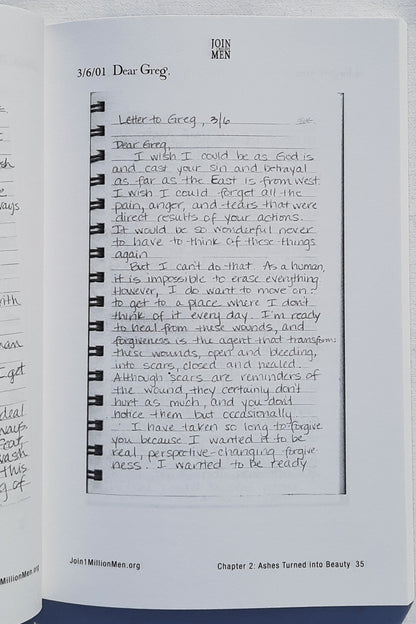 JOIN
MEN
3/6/01 Dear Greg,
Letter to Greg, 3/6
Dear Greg,
I wish I could be as God is
and cast your sin and betrayal
as far as the East is from West.
I wish I could forget all the
pain, anger, and tears that were
direct results of your actions.
It would be so wonderful never
to have to think of these things
again
But I can't do that. As a human,
it is impossible to erase everything
However, I do want to move on:
to get to a place where I don't
think of it every day. I'm ready
to heal from these wounds, and
forgiveness is the agent that transforms
these wounds, open and bleeding,
into scars, closed and healed.
Although scars are reminders of
the wound, they certainly don't
hurt as much, and you don't
notice them but occasionally
I have taken so long to forgive
you because I wanted it to be
real, perspective-changing forgive-
ness. I wanted to be ready
Join1MillionMen.org
Chapter 2: Ashes Turned into Beauty 35
ways
with
man
I get
deal
ways
wash
this
g of
MillionMen.org